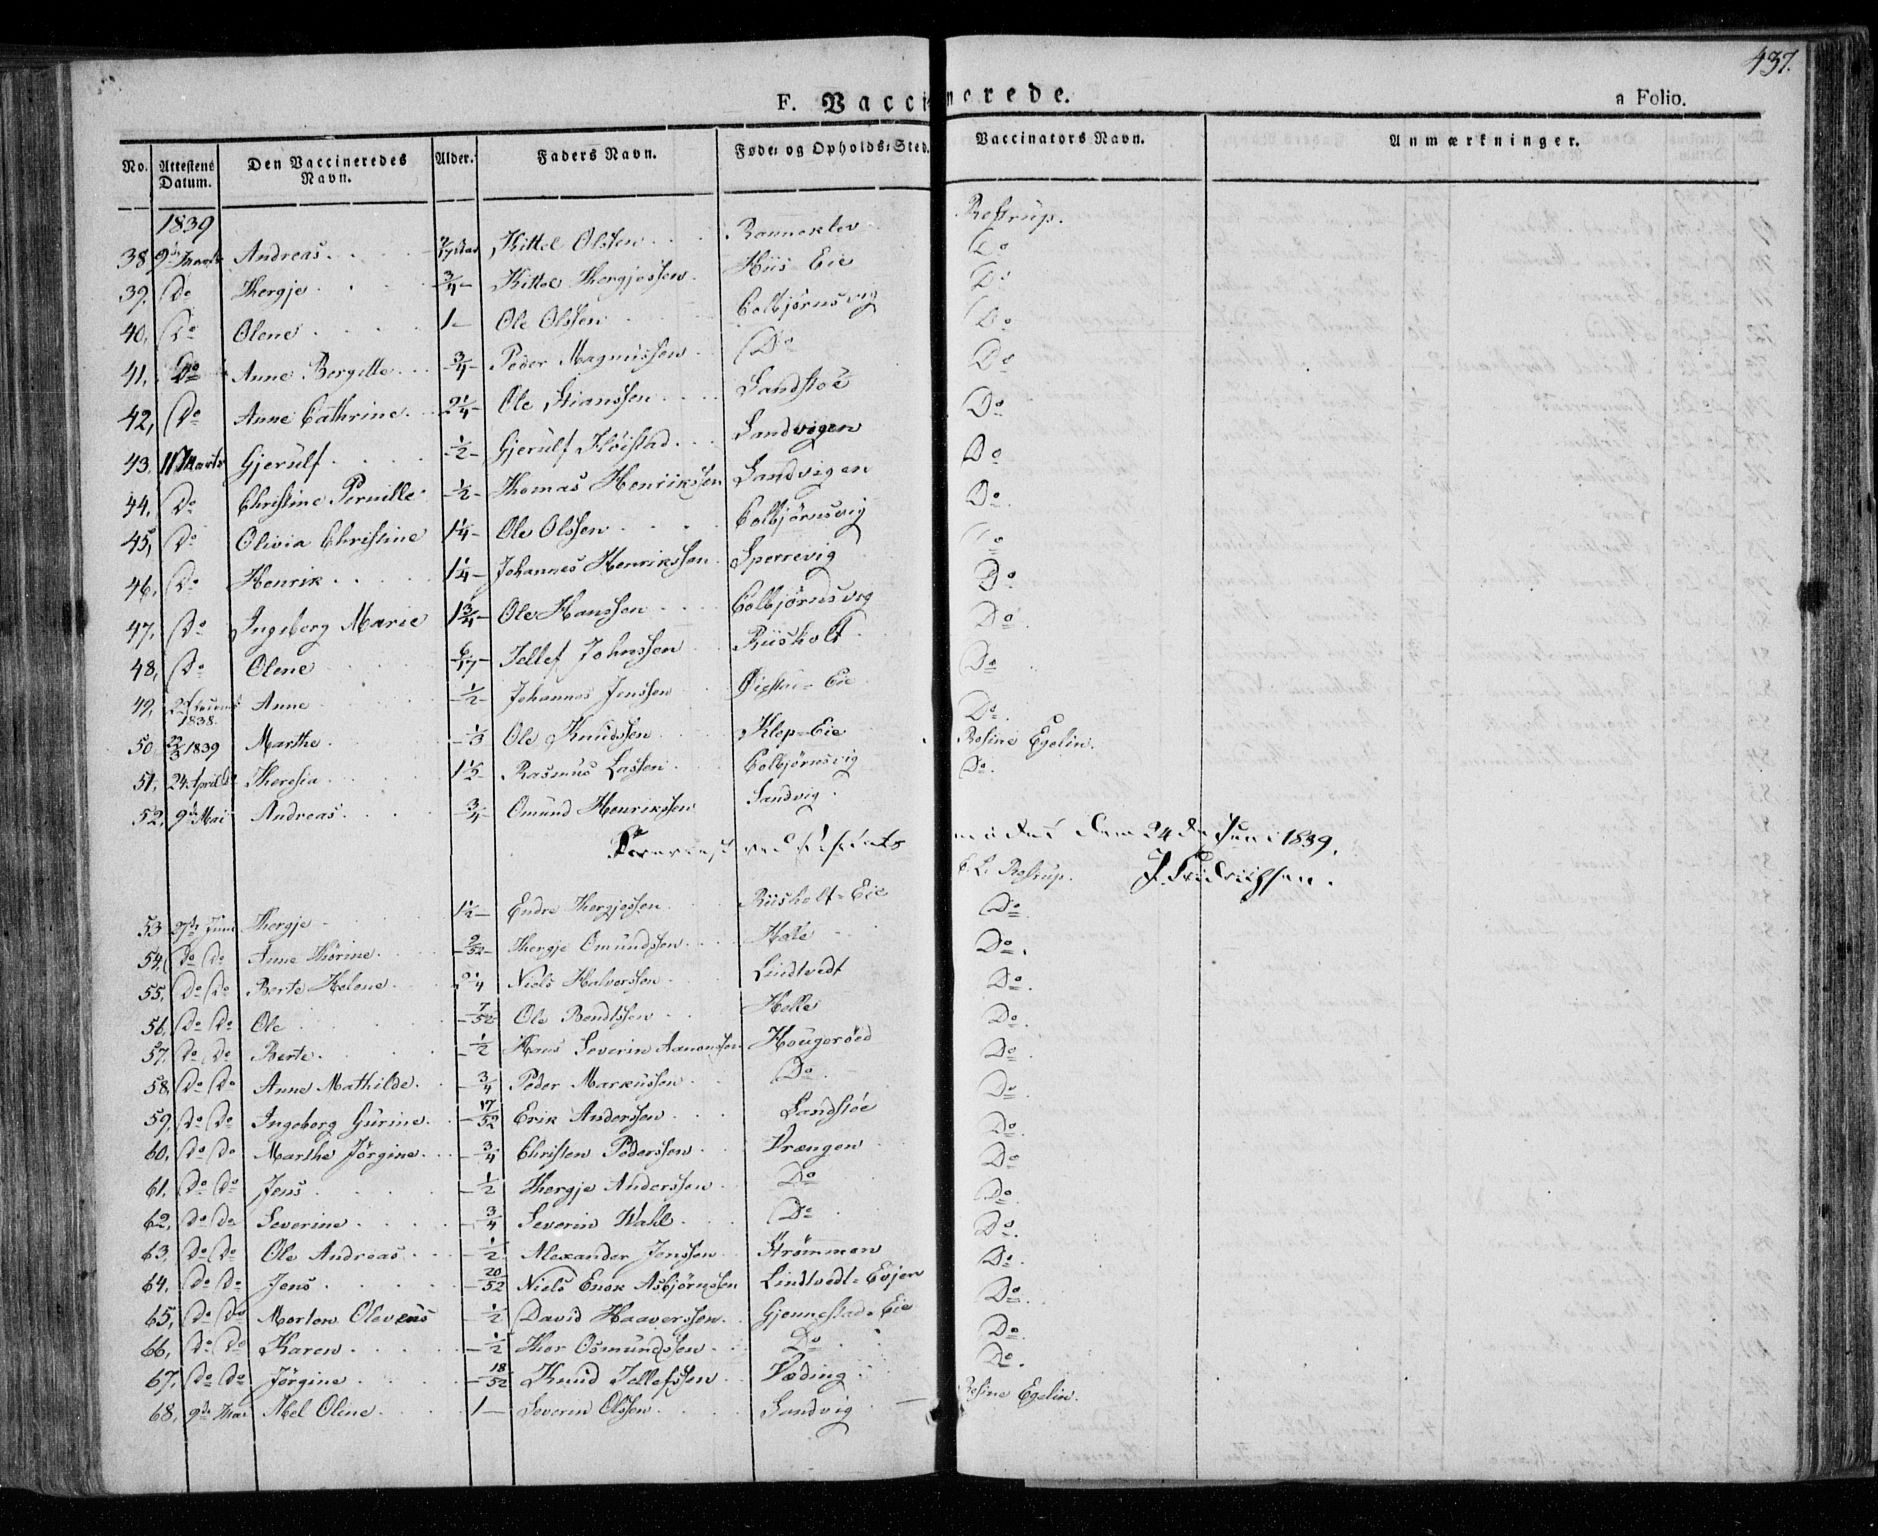 437.
F. Vaccinerede. a Folio.
No. Attestens Datum. Den Vaccineredes Navn. Alder. Faders Navn. Føde- og Opholds-Sted. Vaccinators Navn. Anmærkninger.
1839
38 9de Andreas. Kittel Olssen Ranneklev Restrup.
39, Do Thergje 3/4 Kittel Thergjessen Hiis-Eie Do
40, Do Olene 1 Ole Olssen Colbjørnsvig Do
41, Do Anne Bergitte 3/4 Peder Magnussen Do Do
42, Do Anne Cathrine. 2 1/4 Ole Stianssen Sandstøe Do
43. 11 Marts Gjerulf 1/2 Gjerulf Fløistad Sandvigen Do
44, Do Christine Pernille 1/2 Thomas Henrikssen Sandvigen Do
45, Do Olivia Christine 1 1/4 Ole Olssen Colbjørnsvig Do
46, Do Henrik 1 1/4 Johannes Henrikssen Sperrevig Do
47, Do Ingeborg Marie 1 3/4 Ole Hanssen Colbjørnsvig Do
48, Do Olene Tellef Johnssen Riisholt Do
49, 1838. Anne 1/2 Johannes Jenssen Øigstad-Eie Do
50. 22/3 1839 Marthe 1/3 Ole Knudssen Klep-Eie Do
51, 24 April Theresia 1 1/2 Rasmus Lassen Colbjørnsvig Rosine Egelin.
52, 9de Mai Andreas. 3/4 Omund Henrikssen Sandvig Do
den 24de Juni 1839.
53 27de Juni Thergje 1 1/2 Endre Thergjessen Riisholt-Eie C. L. Restrup.
54, Do Do Anne Thorine 9/52 Thergje Omundssen Hale Do
55, Do Do Berte Helene 2 1/4 Niels Halvorssen Lindtvedt Do
56, Do Do Ole 7/52 Ole Bendtssen Helle Do
57, Do Do Berte. 1/2 Hans Severin Aanonssen Hougerøed Do
58, Do Do Anne Mathilde. 3/4 Peder Markussen Do Do
59, Do Do Ingeborg Gurine. 17/52 Erik Anderssen Sandstøe Do
60, Do Do Marthe Jørgine. 3/4 Christen Pederssen Vrængen Do
61, Do Do Jens 1/2 Thergje Anderssen Do Do
62, Do Do Severine 3/4 Severin Wahl Do Do
63, Do Do Ole Andreas 1/2 Alexander Jenssen Strømmen Do
64, Do Do Jens 20/52 Niels Enok Asbjørnssen Lindtvedt-Evjen Do
65, Do Do Morten Olevens 1/2 David Haaverssen Gjennestad-Eie Do
66, Do Do Karen 1/2 Thor Osmundssen Do Do
67, Do Do Jørgine 18/52 Knud Tellefssen Væding Do
68, 9de Mai Abel Oline 1 Severin Olssen Sandvig Rosine Egelin.